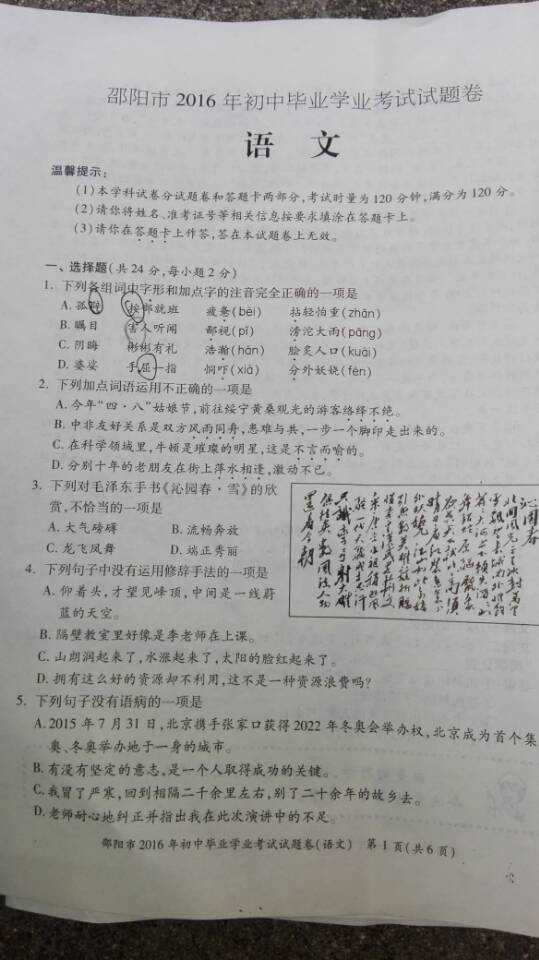 邵阳市2016年初中毕业学业考试试题卷
语 文
温馨提示:
(1)本学科试卷分试题卷和答题卡两部分,考试时量为120分钟,满分为120分。
(2)请你将姓名、准考证号等相关信息按要求填涂在答题卡上。
(3)请你在答题卡上作答,答在本试题卷上无效。
一、选择题(共24分,每小题2分)
1. 下列各组词中字形和加点字的注音完全正确的一项是
A. 孤辟 按部就班 疲惫(bèi) 拈轻怕重(zhān)
B. 瞩目 害人听闻 鄙视(pǐ) 滂沱大雨(pāng)
C. 阴晦 彬彬有礼 浩瀚(hàn) 脍炙人口(kuài)
D. 婆娑 手屈一指 恫吓(xià) 分外妖娆(fèn)
2. 下列加点词语运用不正确的一项是
A. 今年“四·八”姑娘节,前往绥宁黄桑观光的游客络绎不绝。
B. 中非友好关系是双方风雨同舟,患难与共,一步一个脚印走出来的。
C. 在科学领域里,牛顿是璀璨的明星,这是不言而喻的。
D. 分别十年的老朋友在街上萍水相逢,激动不已。
3. 下列对毛泽东手书《沁园春·雪》的欣
赏,不恰当的一项是
A. 大气磅礴 B. 流畅奔放
C. 龙飞凤舞 D. 端正秀丽
沁园春
4. 下列句子中没有运用修辞手法的一项是
A. 仰着头,才望见峰顶,中间是一线蔚
蓝的天空。
B. 隔壁教室里好像是李老师在上课。
C. 山朗润起来了,水涨起来了,太阳的脸红起来了。
D. 拥有这么好的资源却不利用,这不是一种资源浪费吗?
5. 下列句子没有语病的一项是
A. 2015年7月31日,北京携手张家口获得2022年冬奥会举办权,北京成为首个集
奥、冬奥举办地于一身的城市。
B. 有没有坚定的意志,是一个人取得成功的关键。
C. 我冒了严寒,回到相隔二千余里左右,别了二十余年的故乡去。
D. 老师耐心地纠正并指出我在此次演讲中的不足。
邵阳市2016年初中毕业学业考试试题卷(语文) 第1页(共6页)